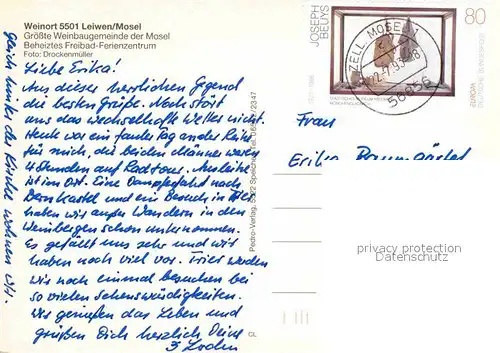 Weinort 5501 Leiwen/Mosel
Größte Weinbaugemeinde der Mosel
Beheiztes Freibad-Ferienzentrum
Foto: Drockenmüller
Liebe Erika!
Aus dieser herrlichen Gegend
die besten Grüße. Noch stört
uns das wechselhafte Wetter nicht.
Heute war ein fauler Tag an der Reihe
für mich, die beiden Männer waren
4 Stunden auf Radtour. Ausleihe
ist im Ort. Eine Dampferfahrt nach
Bernkastel und ein Besuch in Trier
haben wir außer Wandern in den
Weinbergen schon unternommen.
Es gefällt uns sehr und wir
haben noch viel vor. Trier werden
wir noch einmal besuchen bei
so vielen Sehenswürdigkeiten.
Wir genießen das Leben und
grüßen Dich herzlich, Deine
3
Gleich hinter der Kirche wohnen wir.
Pedro-Verlag, 5522 Speicher, Tel.
2347
CL
JOSEPH
BEUYS
80
DEUTSCHE BUNDESPOST
ZELL, MOSEL 1
56856
Frau
Erika
privacy protection
Datenschutz